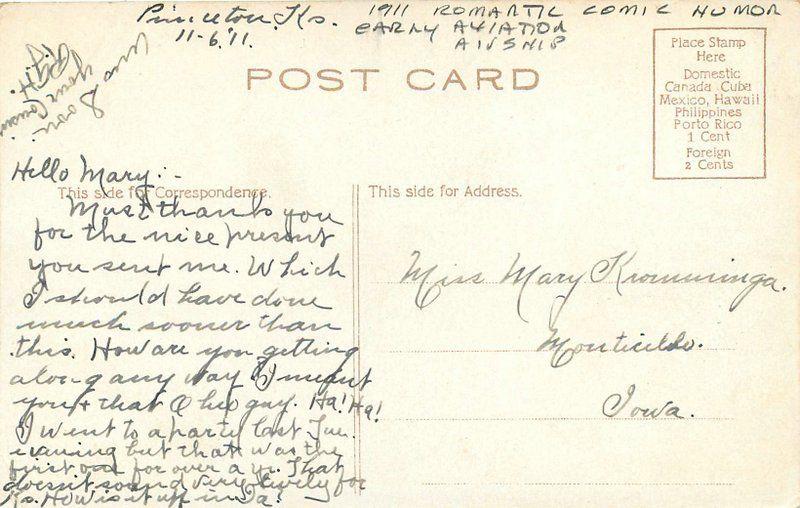 Princeton, Ks.
11-6.'11.
1911 ROMANTIC COMIC HUMOR
EARLY AVIATION
AIRSHIP
POST CARD
Place Stamp
Here
Domestic
Canada Cuba
Mexico, Hawaii
Philippines
Porto Rico
1 Cent
Foreign
2 Cents
This side for Correspondence.
This side for Address.
Hello Mary:-
Must thank you
for the nice present
you sent me. Which
I should have done
much sooner than
this. How are you getting
along any way? I meant
you + that Ohio guy. Ha! Ha!
I went to a party last Tue.
evening but that was the
first one for over a yr. That
doesn't sound very lively for
Ks. How is it up in Ia?
soon
your Cousin
Miss Mary Kromminga.
Monticello.
Iowa.